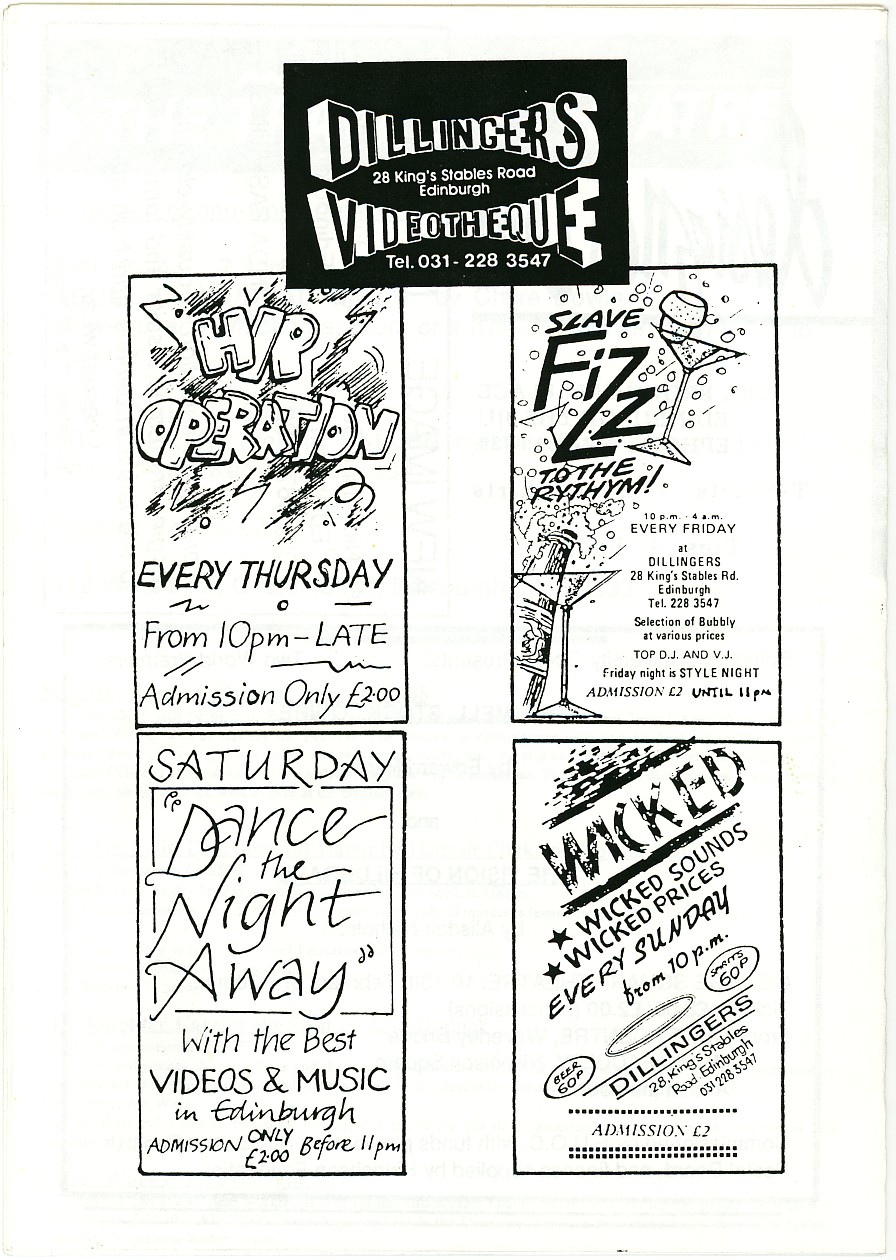 DILLINGERS
28 King's Stables Road
Edinburgh
VIDEOTHEQUE
Tel. 031-228 3547
HIP
OPERATION
EVERY THURSDAY
From 10pm – LATE
Admission Only £2·00
SLAVE
FiZZ
TO THE
RYTHYM!
10 p.m. - 4 a.m.
EVERY FRIDAY
at
DILLINGERS
28 King's Stables Rd.
Edinburgh
Tel. 228 3547
Selection of Bubbly
at various prices
TOP D.J. AND V.J.
Friday night is STYLE NIGHT
ADMISSION £2 UNTIL 11pm
SATURDAY
"Dance
the
Night
Away"
With the Best
VIDEOS & MUSIC
in Edinburgh
ADMISSION ONLY £2·00 Before 11pm
WICKED
★ WICKED SOUNDS
★ WICKED PRICES
EVERY SUNDAY
from 10 p.m.
SPIRITS
60P
BEER
60P
DILLINGERS
28, King's Stables
Road Edinburgh
031 228 3547
ADMISSION £2